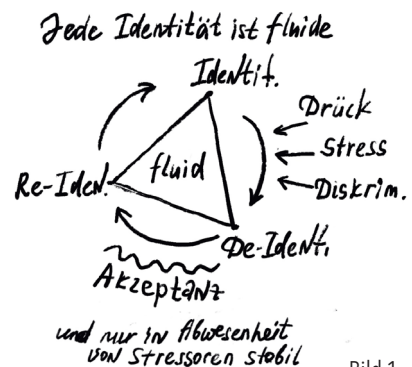 Jede Identität ist fluide
Identit.
Drück
Stress
Diskrim.
fluid
Re-Iden.
De-Identi.
Akzeptanz
und nur in Abwesenheit
von Stressoren stabil
Bild 1